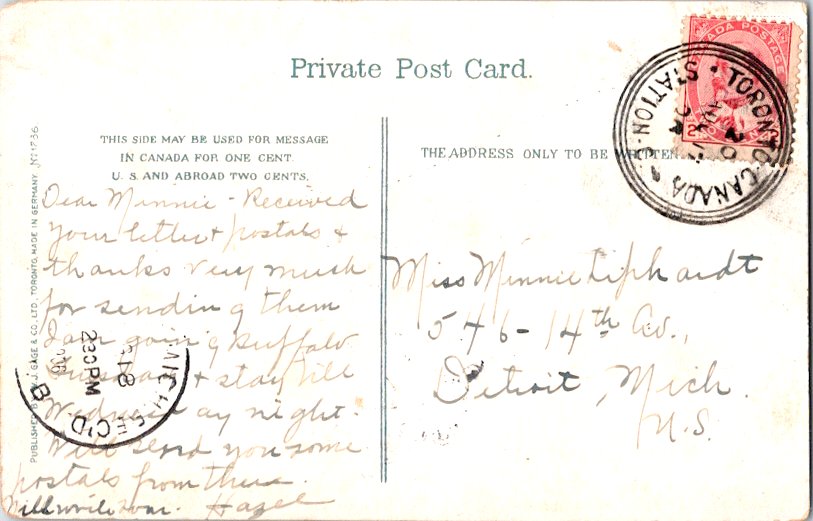 Private Post Card.
CANADA POSTAGE
TORONTO · CANADA
STATION
THIS SIDE MAY BE USED FOR MESSAGE
IN CANADA FOR ONE CENT.
U. S. AND ABROAD TWO CENTS.
THE ADDRESS ONLY TO BE WRITTEN
PUBLISHED BY W. J. GAGE & CO., LTD., TORONTO, MADE IN GERMANY. No 1736
Dear Minnie - Received
your letter & postals &
thanks very much
for sending them
I am going Buffalo
& stay till
Wednesday night.
Will send you some
postals from there.
Will write
Hazel
Miss Minnie Liphardt
546 - 14th Av.,
Detroit, Mich.
U.S.
MICH.
REC'D
8
2 30 PM